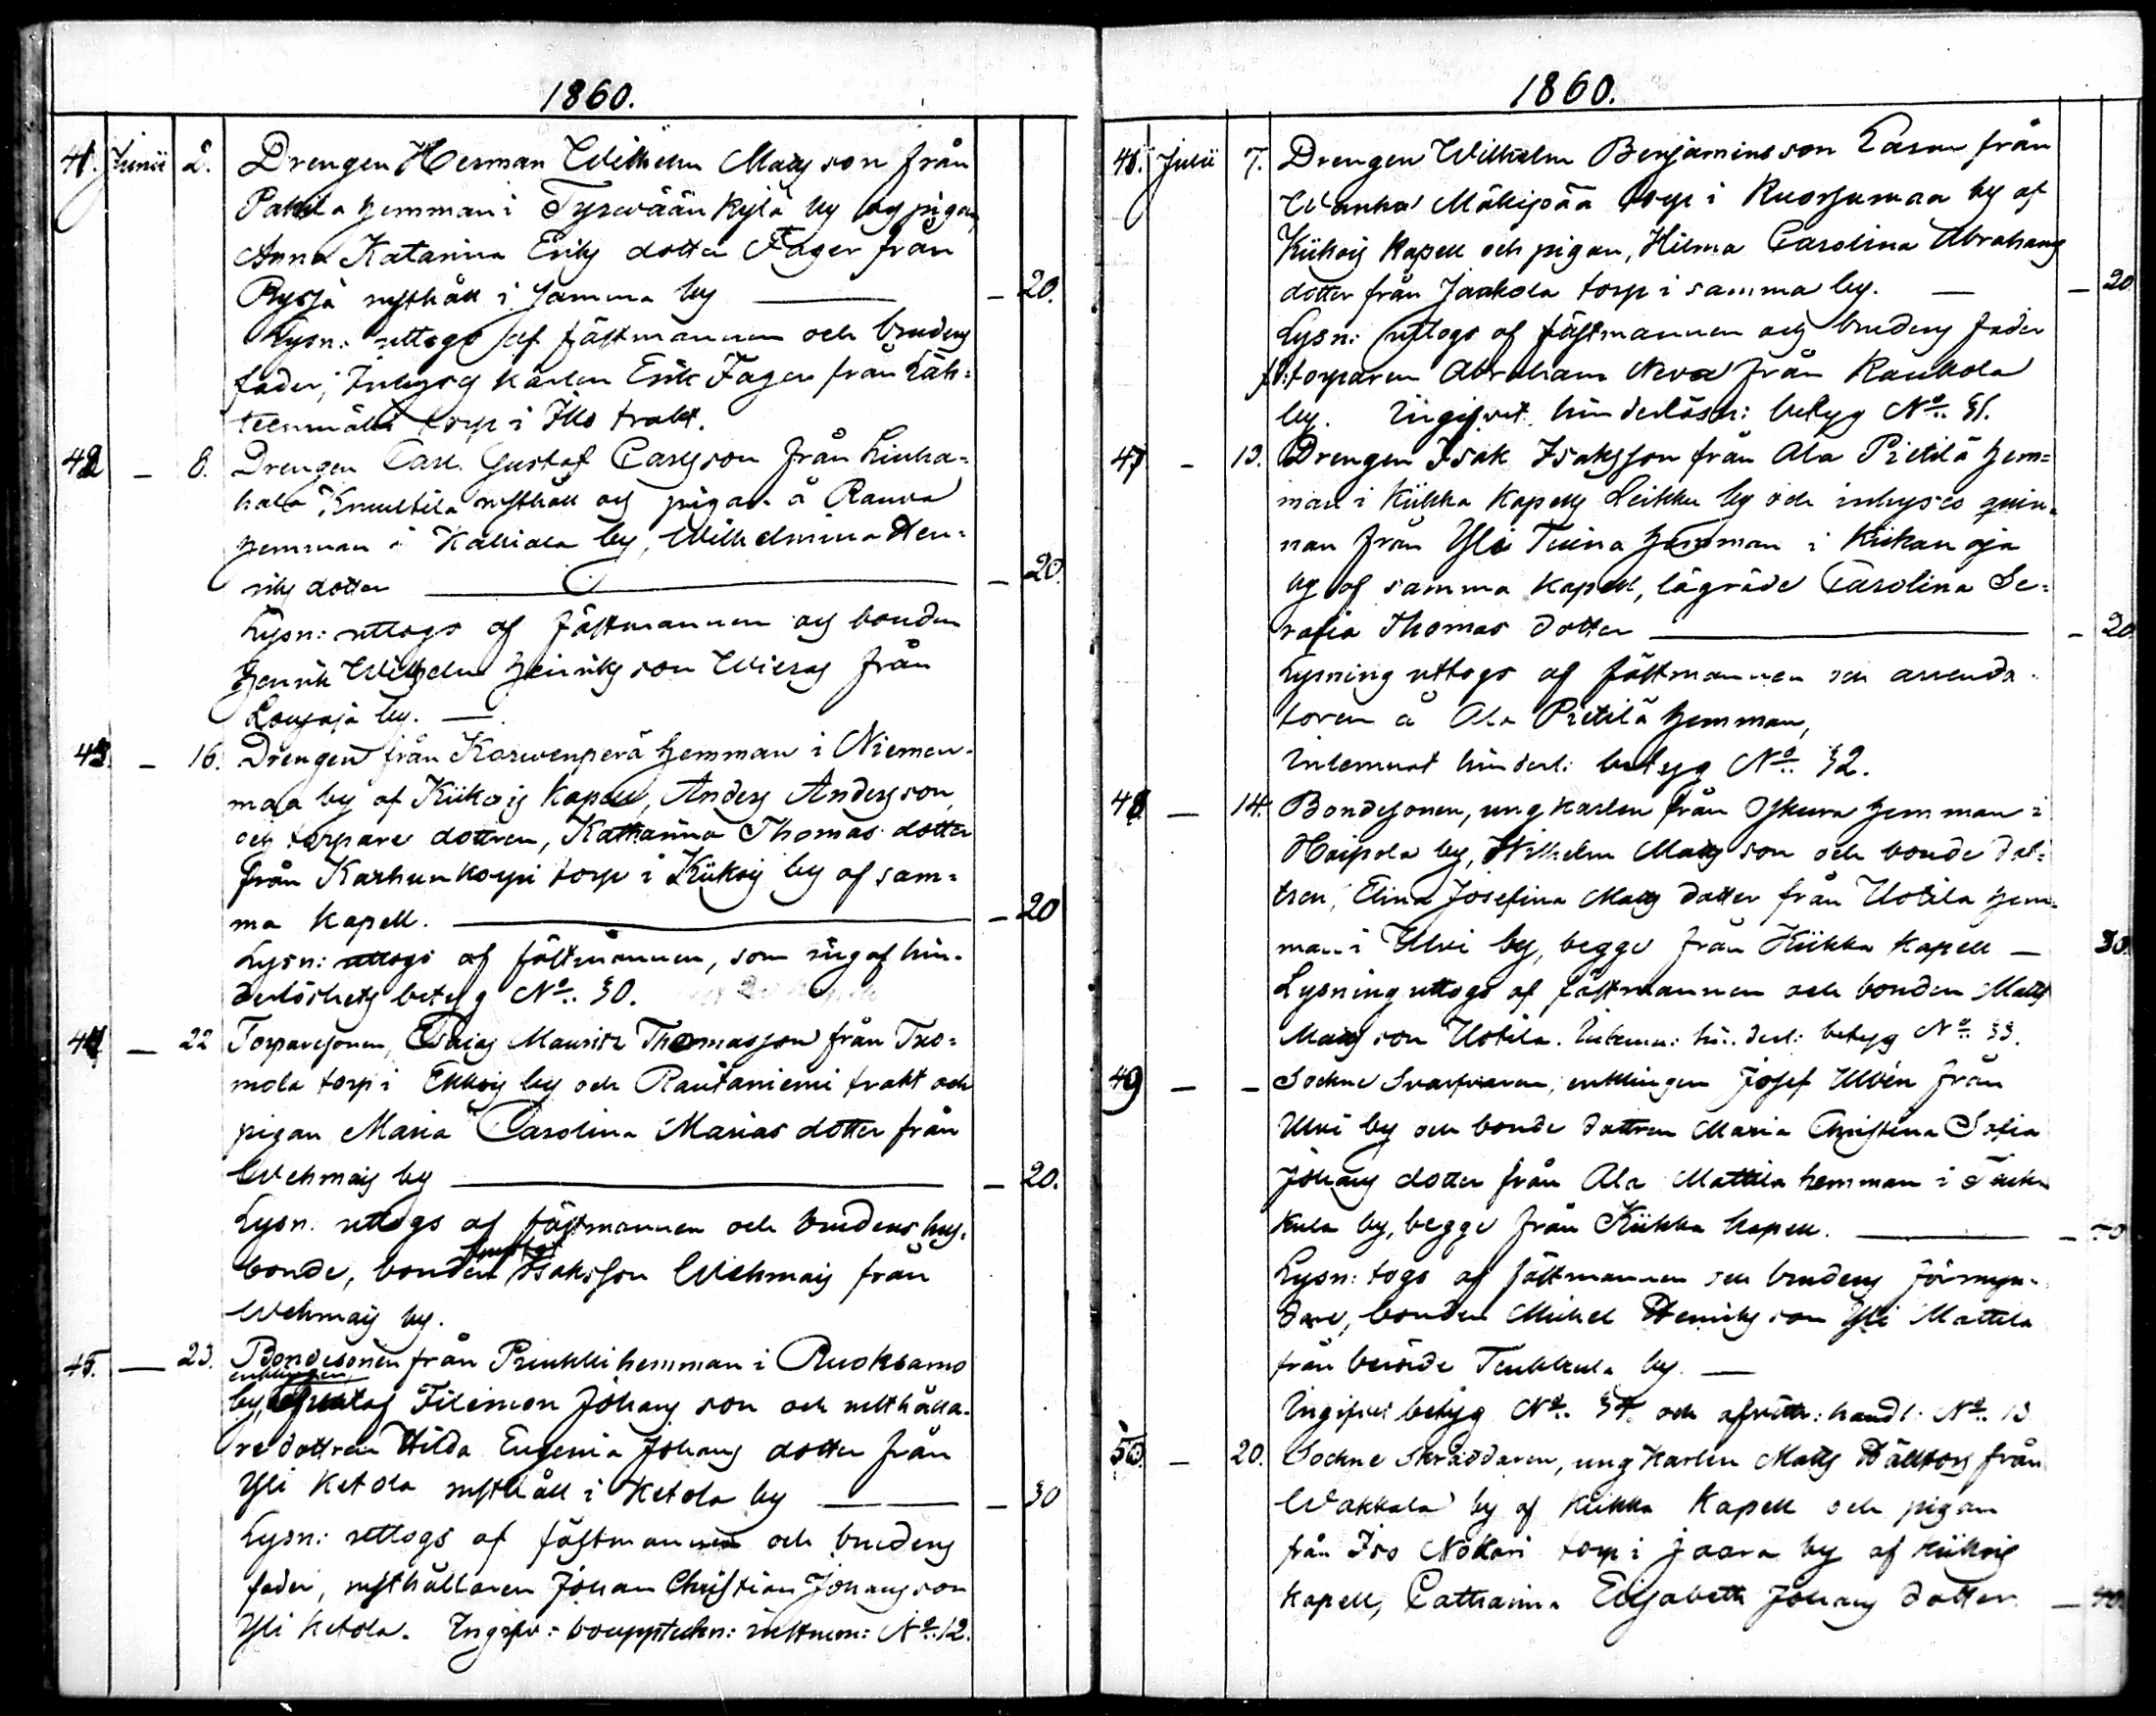 1860.
41. Junii 2. Drengen Herman Wilhelm Matts son från
Pakkila hemman i Tyrwään kylä by och pigan,
Anna Katarina Eriks dotter Fager från
Rysjä rusthåll i samma by — – 20.
Lysn: uttogs af fästmannen och brudens
fader, Inhyses karlen Erik Fager från Läh=
teenmäki torp i Illo trakt.
42 – 8. Drengen Carl Gustaf Carlsson från Liuha=
hala Knuutila rusthåll och pigan å Rauva
hemman i Kalliala by, Wilhelmina Hen=
riks dotter — – 20.
Lysn: uttogs af fästmannen och bonden
Henrik Wilhelm Henriks son Wiersy från
Lousaja by. —
43. – 16. Drengen från Korwenperä hemman i Niemen=
maa by af Kiikois kapell, Anders Andersson,
och torpare dottren, Katharina Thomas dotter
från Karhunkorpi torp i Kiikois by af sam=
ma kapell. — – 20
Lysn: uttogs af fästmannen, som ingaf hin=
derlöshets betyg Nº. 30.
44 – 22 Torparesonen, Esaias Mauritz Thomasson från Tuo=
mola torp i Ekkois by och Rautaniemi trakt och
pigan Maria Carolina Marias dotter från
Wehmais by — – 20.
Lysn. uttogs af fästmannen och brudens hus=
bonde, bonden Gustaf Isaksson Wehmais från
Wehmais by.
45. – 23. Bondesonen från Prinkki hemman i Ruoksamo
by, enklingen, Gustaf Filemon Johans son och rusthålla=
re dottren Hilda Eugenia Johans dotter från
Yli Ketola rusthåll i Ketola by — – 30
Lysn: uttogs af fästmannen och brudens
fader, rusthållaren Johan Christian Johansson
Yli Ketola. Ingifv: bouppteckn: instrum: Nº. 12.
1860.
46. Julii 7. Drengen Wilhelm Benjamins son Lason från
Wanha Mäkipää torp i Ruorjumaa by af
Kiikois kapell och pigan, Hilma Carolina Abrahams
dotter från Jaakola torp i samma by. — – 20
Lysn: uttogs af fästmannen och brudens fader
f.d: torparen Abraham Neva från Raukola
by. Ingifvet hinderlösh: betyg Nº. 31.
47 – 13. Drengen Isak Isaksson från Ala Pietilä hem=
man i Kiikka kapells Leikku by och inhyses qvin=
nan från Yli Tuina hemman i Kiikan oja
by af samma kapell, lägrade Carolina Se=
rafia Thomas dotter — – 20
Lysning uttogs af fästmannen och arrenda=
toren å Ala Pietilä hemman,
Inlemnat hinderl: betyg Nº. 32.
48 – 14. Bondesonen, ungkarlen från Oskura hemman i
Haipola by, Wilhelm Matts son och bonde dot=
tren, Elina Josefina Matts dotter från Uotila hem=
man i Ulvi by, begge från Kiikka kapell – 30.
Lysning uttogs af fästmannen och bonden Matts
Matts son Uotila. Inlemn: hinderl: betyg Nº. 33.
49 – – Sockne Svarfvaren, enklingen Josef Ulvén från
Ulvi by och bonde dottren Maria Christina Sofia
Johans dotter från Ala Mattila hemman i Teuk=
kula by, begge från Kiikka kapell. —
Lysn: togs af fästmannen och brudens förmyn=
dare, bonden Mickel Henriks son Yli Mattila
från berörde Teukkula by. —
Ingifvet betyg Nº. 34. och afvittr: handl: Nº. 13
50. – 20. Sockne skräddaren, ungkarlen Matts Hällfors från
Wakkala by af Kiikka kapell och pigan
från Iso Nokari torp i Jaara by af Kiikois
kapell, Catharina Elisabeth Johans dotter – 40.